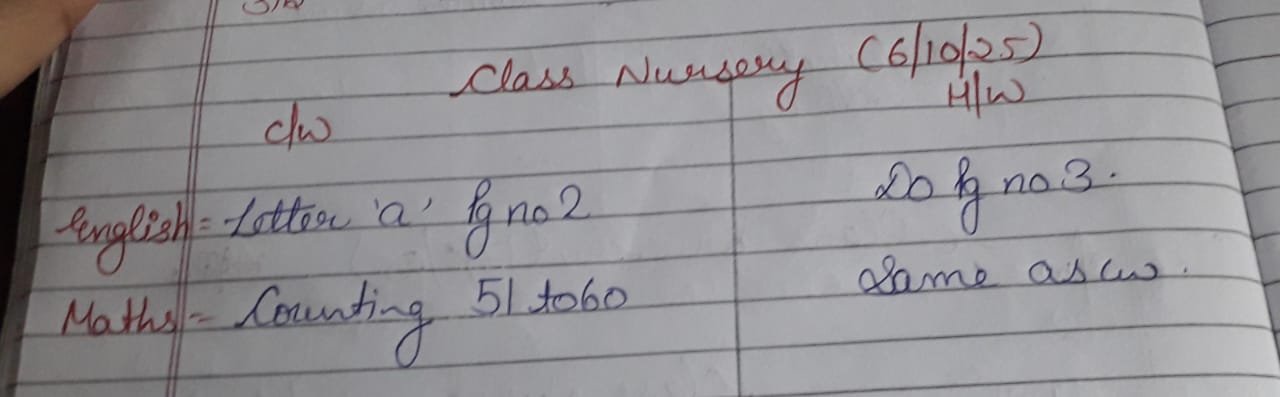 Class Nursery (6/10/25)
C/W H/W
English = Letter 'a' Pg no 2 Do Pg no 3.
Maths = Counting 51 to 60 Same as cw.